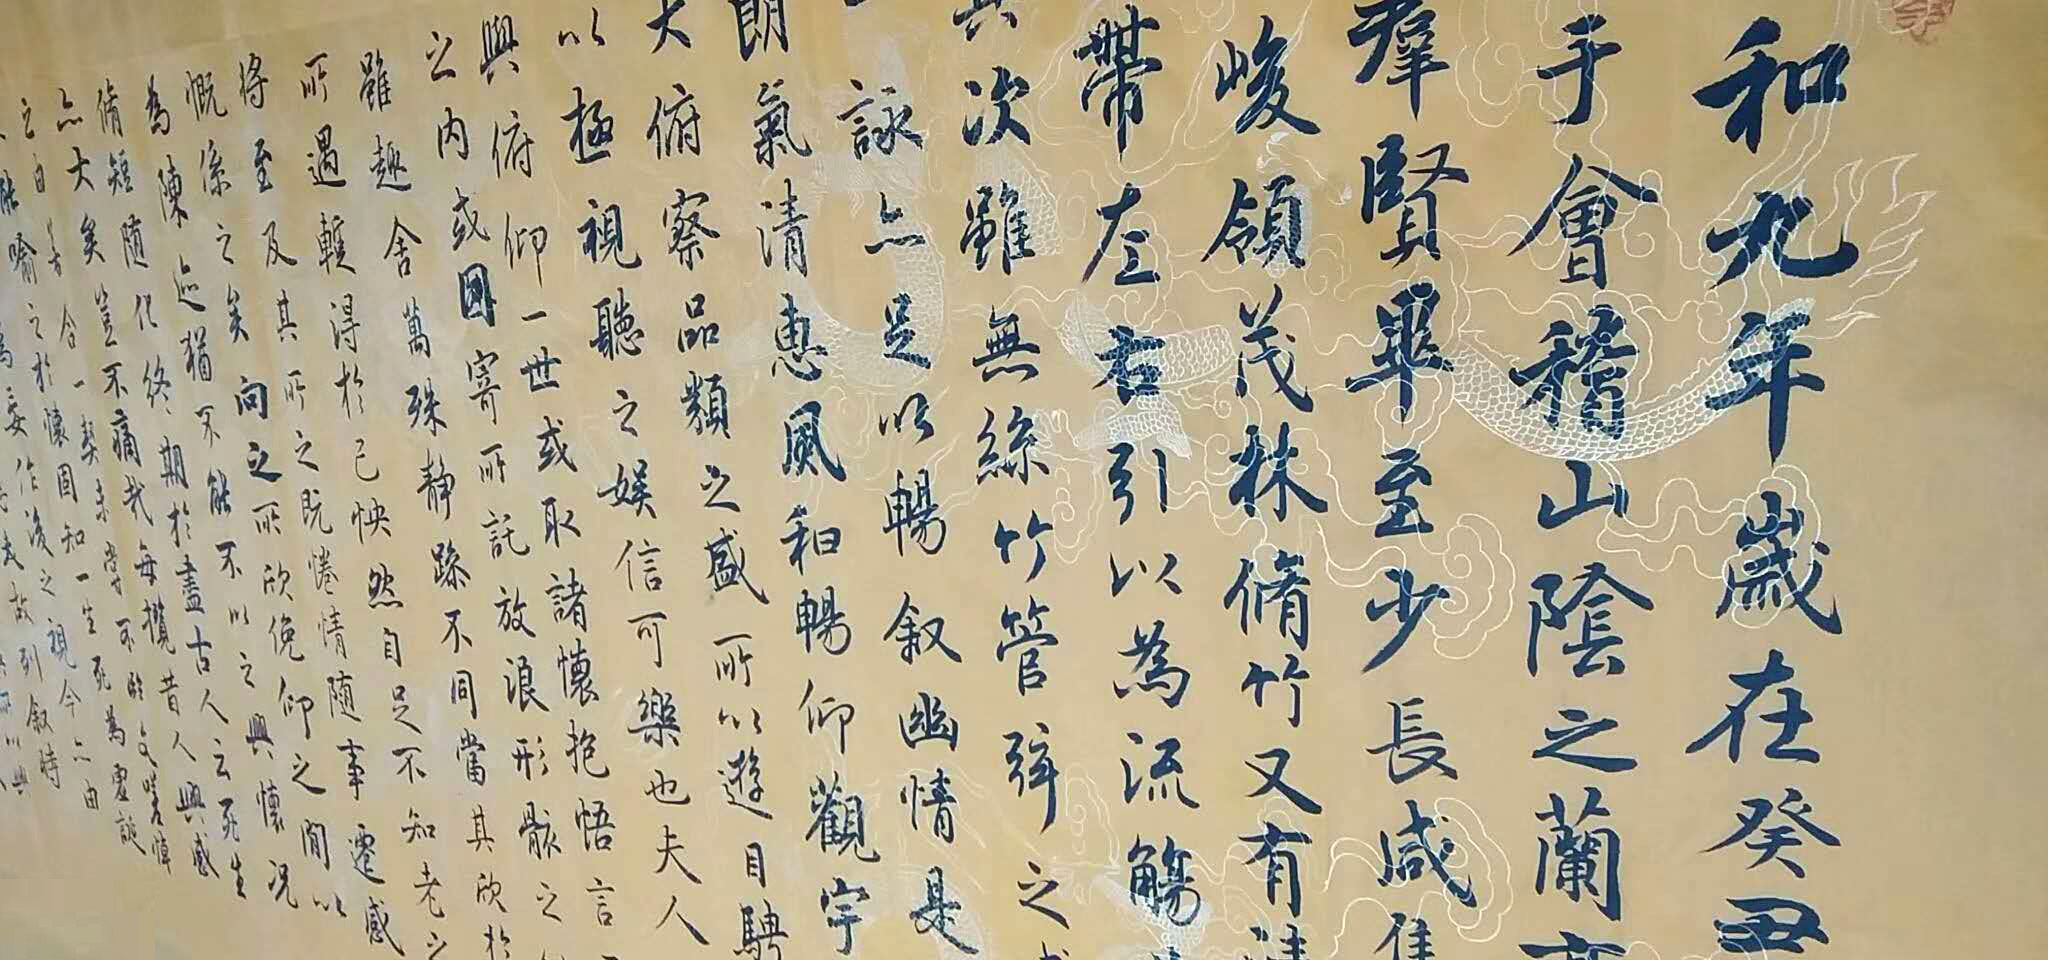 和九年歲在癸丑
于會稽山陰之蘭
羣賢畢至少長咸
峻領茂林脩竹又有清
帶左右引以為流觴
次雖無絲竹管弦之
詠亦足以暢叙幽情是
朗氣清惠風和暢仰觀宇
大俯察品類之盛所以遊目騁
以極視聽之娱信可樂也夫人
與俯仰一世或取諸懷抱悟言
之内或因寄所託放浪形骸之
雖趣舍萬殊静躁不同當其欣於
所遇蹔得於己怏然自足不知老之
將至及其所之既惓情随事遷感
慨係之矣向之所欣俛仰之閒以
為陳迹猶不能不以之興懷况
脩短随化終期於盡古人云死生
亦大矣豈不痛哉每攬昔人興感
之由若合一契未嘗不臨文嗟悼
能喻之於懷固知一生死為虚誕
為妄作後之視今亦由
夫故列叙時